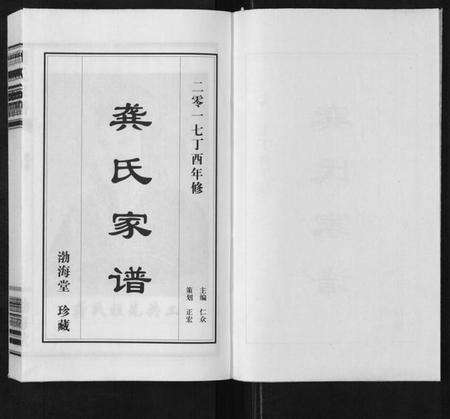 二零一七丁酉年修
龚氏家谱
主编 仁众
策划 正宏
渤海堂 珍藏